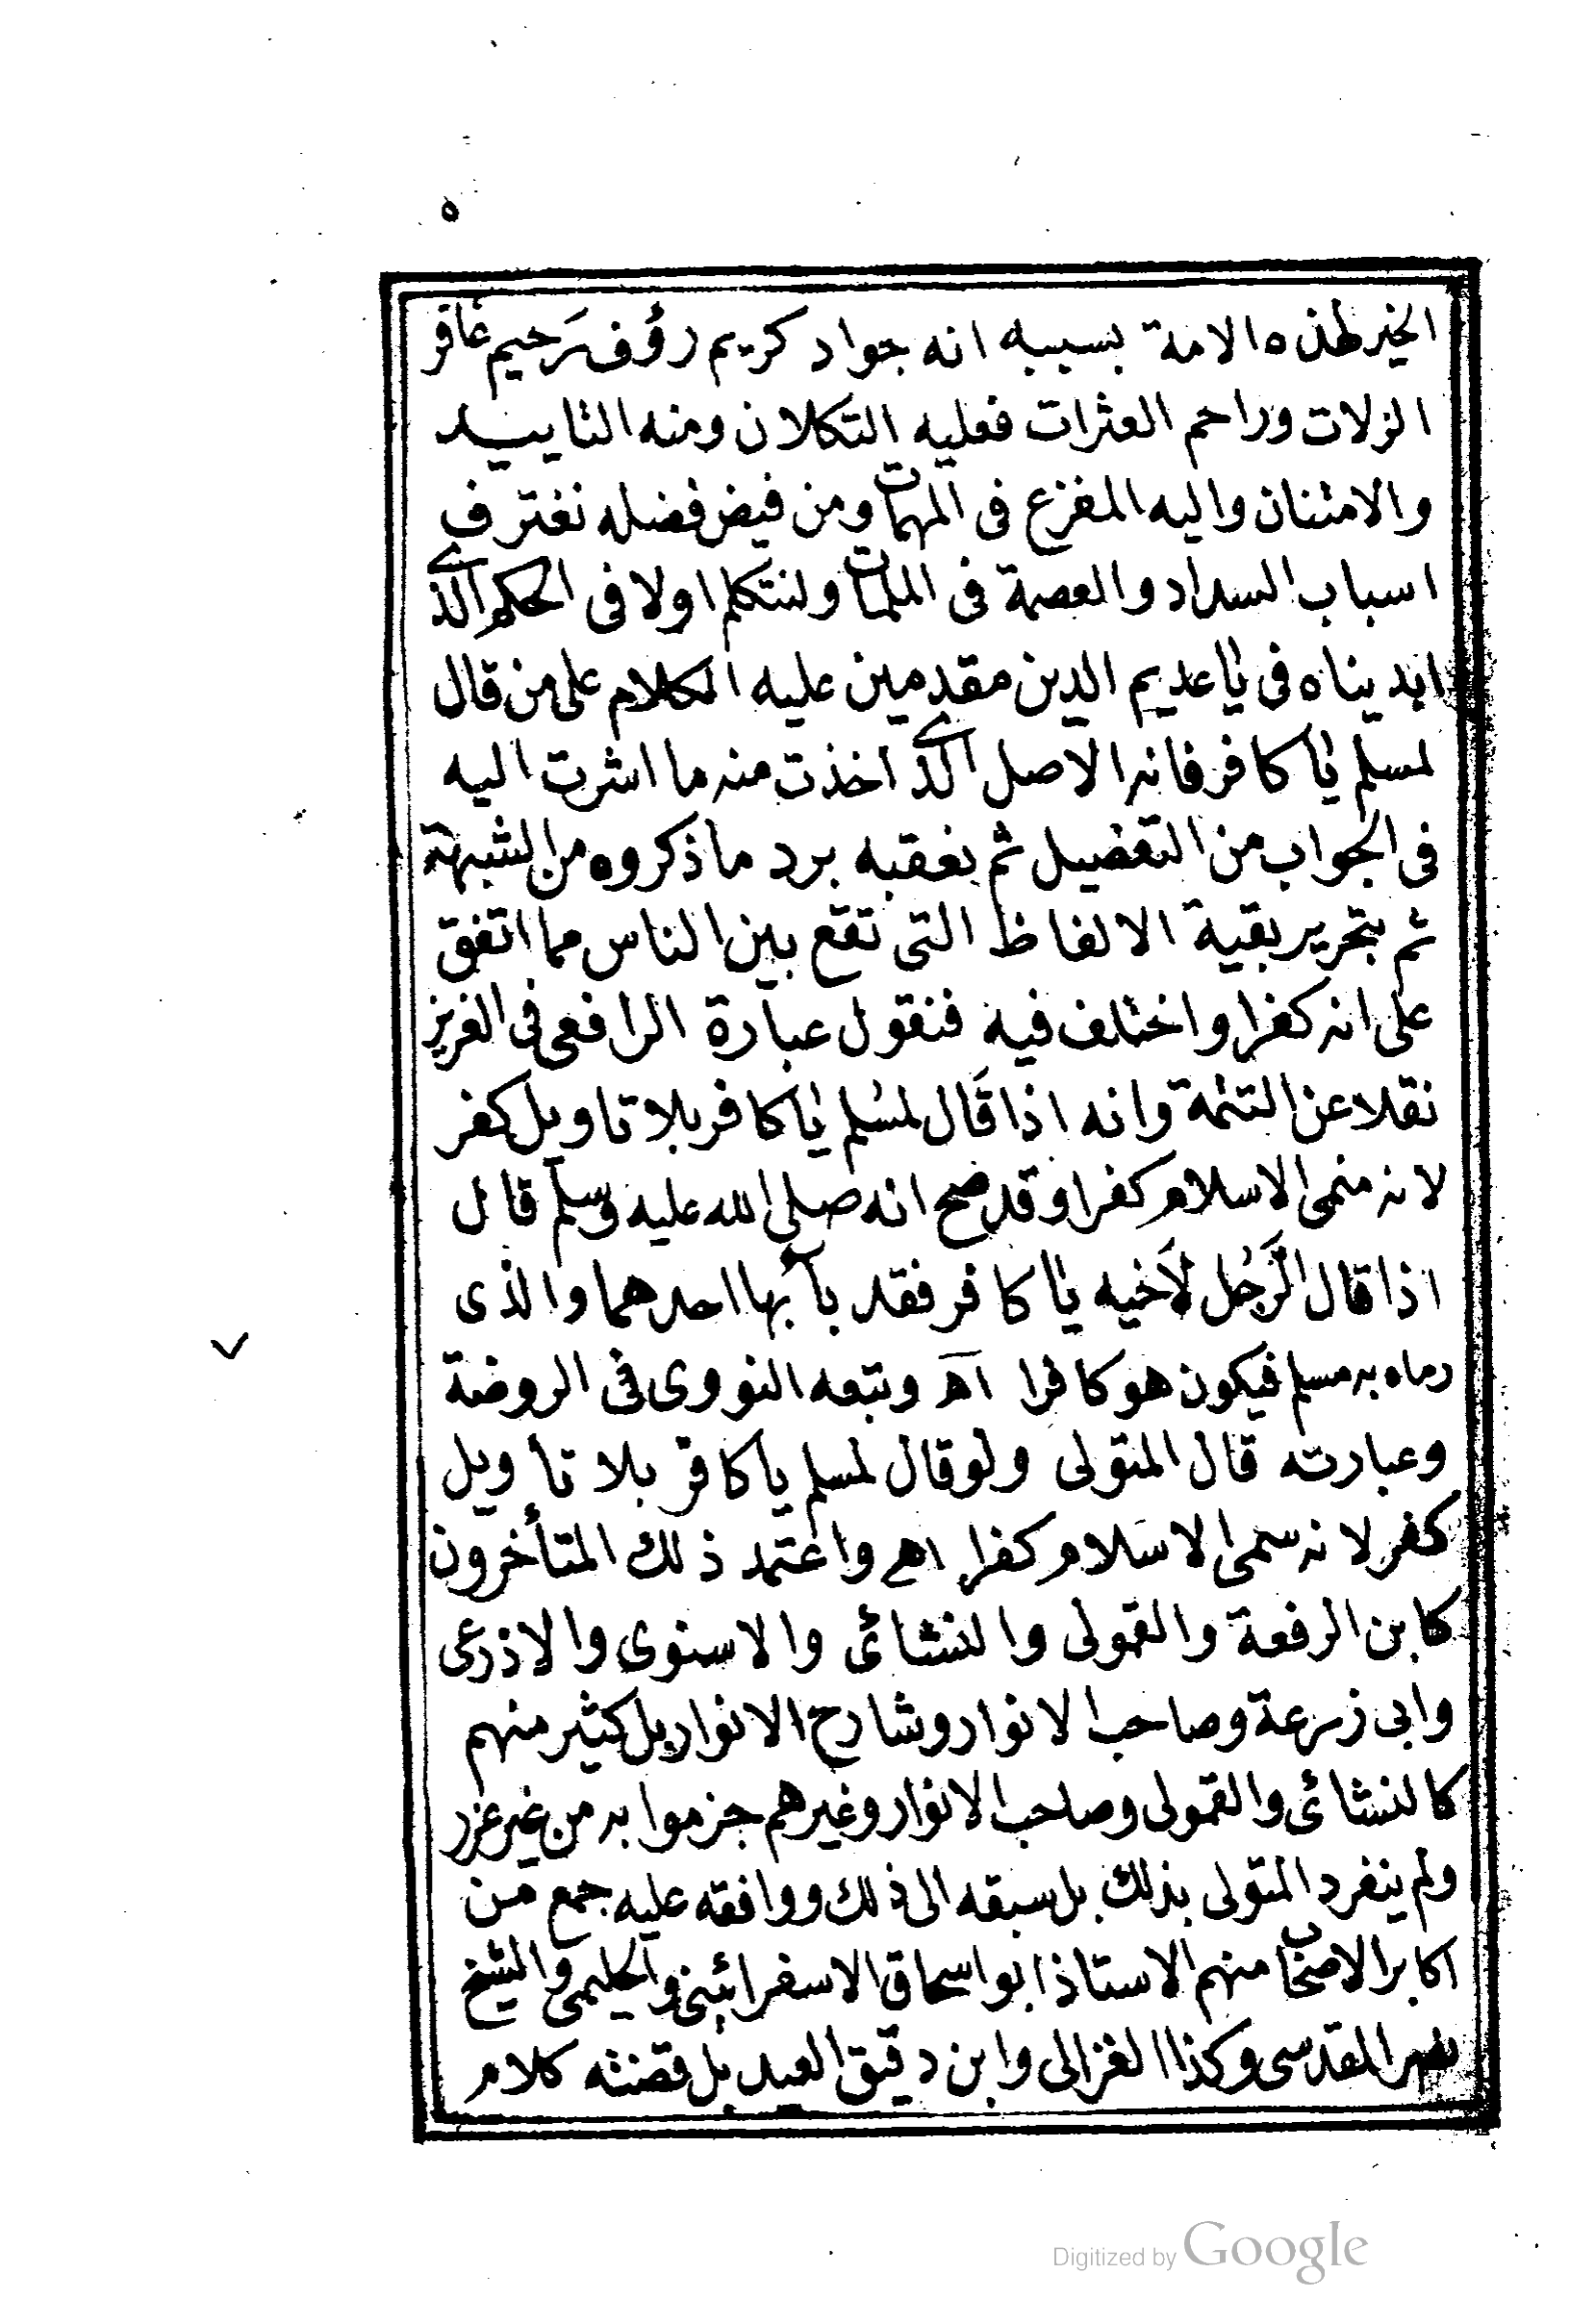 ٥
الخير لهذه الامة بسببه انه جواد كريم رؤف رحيم غافر
الزلات وراحم العثرات فعليه التكلان ومنه التاييد
والامتنان واليه المفزع فى المهمات ومن فيض فضله نغترف
اسباب السداد والعصمة فى الملمات ولنتكلم اولا فى الحكم الذى
ابديناه فى يا عديم الدين مقدمين عليه الكلام على من قال
لمسلم يا كافر فانه الاصل الذى اخذت منه ما اشرت اليه
فى الجواب من التفصيل ثم نعقبه برد ما ذكروه من الشبهة
ثم بتحرير بقية الالفاظ التى تقع بين الناس مما اتفق
على انه كفر او اختلف فيه فنقول عبارة الرافعى فى العزيز
نقلا عن التتمة وانه اذا قال لمسلم يا كافر بلا تاويل كفر
لانه سمى الاسلام كفرا وقد صح انه صلى الله عليه وسلم قال
اذا قال الرَّجُل لأخيه يا كافر فقد بآ بها احدهما والذى
رماه به مسلم فيكون هو كافرا اه وتبعه النووى فى الروضة
وعبارته قال المتولى ولو قال لمسلم يا كافر بلا تأويل
كفر لانه سمى الاسلام كفرا اهـ واعتمد ذلك المتأخرون
كابن الرفعة والقمولى والنشائى والاسنوى والاذرعى
وابى زرعة وصاحب الانوار وشارح الانوار بل كثير منهم
كالنشائى والقمولى وصاحب الانوار وغيرهم جزموا به من غير عزو
ولم ينفرد المتولى بذلك بل سبقه الى ذلك ووافقه عليه جمع من
اكابر الاصحاب منهم الاستاذ ابو اسحاق الاسفرائينى والحليمى والشيخ
نصر المقدسى وكذا الغزالى وابن دقيق العيد بل قضته كلام
Digitized by Google